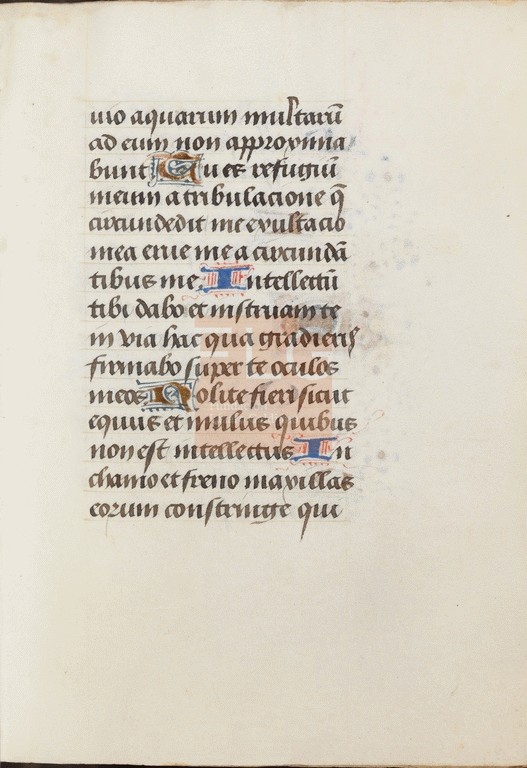 uio aquarum multarū
ad eum non approxima
bunt Tu es refugiū
meum a tribulacione q̄
circundedit me exultacio
mea erue me a circundā
tibus me. Intellectū
tibi dabo et instruam te
in via hac qua gradieris
firmabo super te oculos
meos. Nolite fieri sicut
equus et mulus quibus
non est intellectus In
chamo et freno maxillas
eorum constringe qui